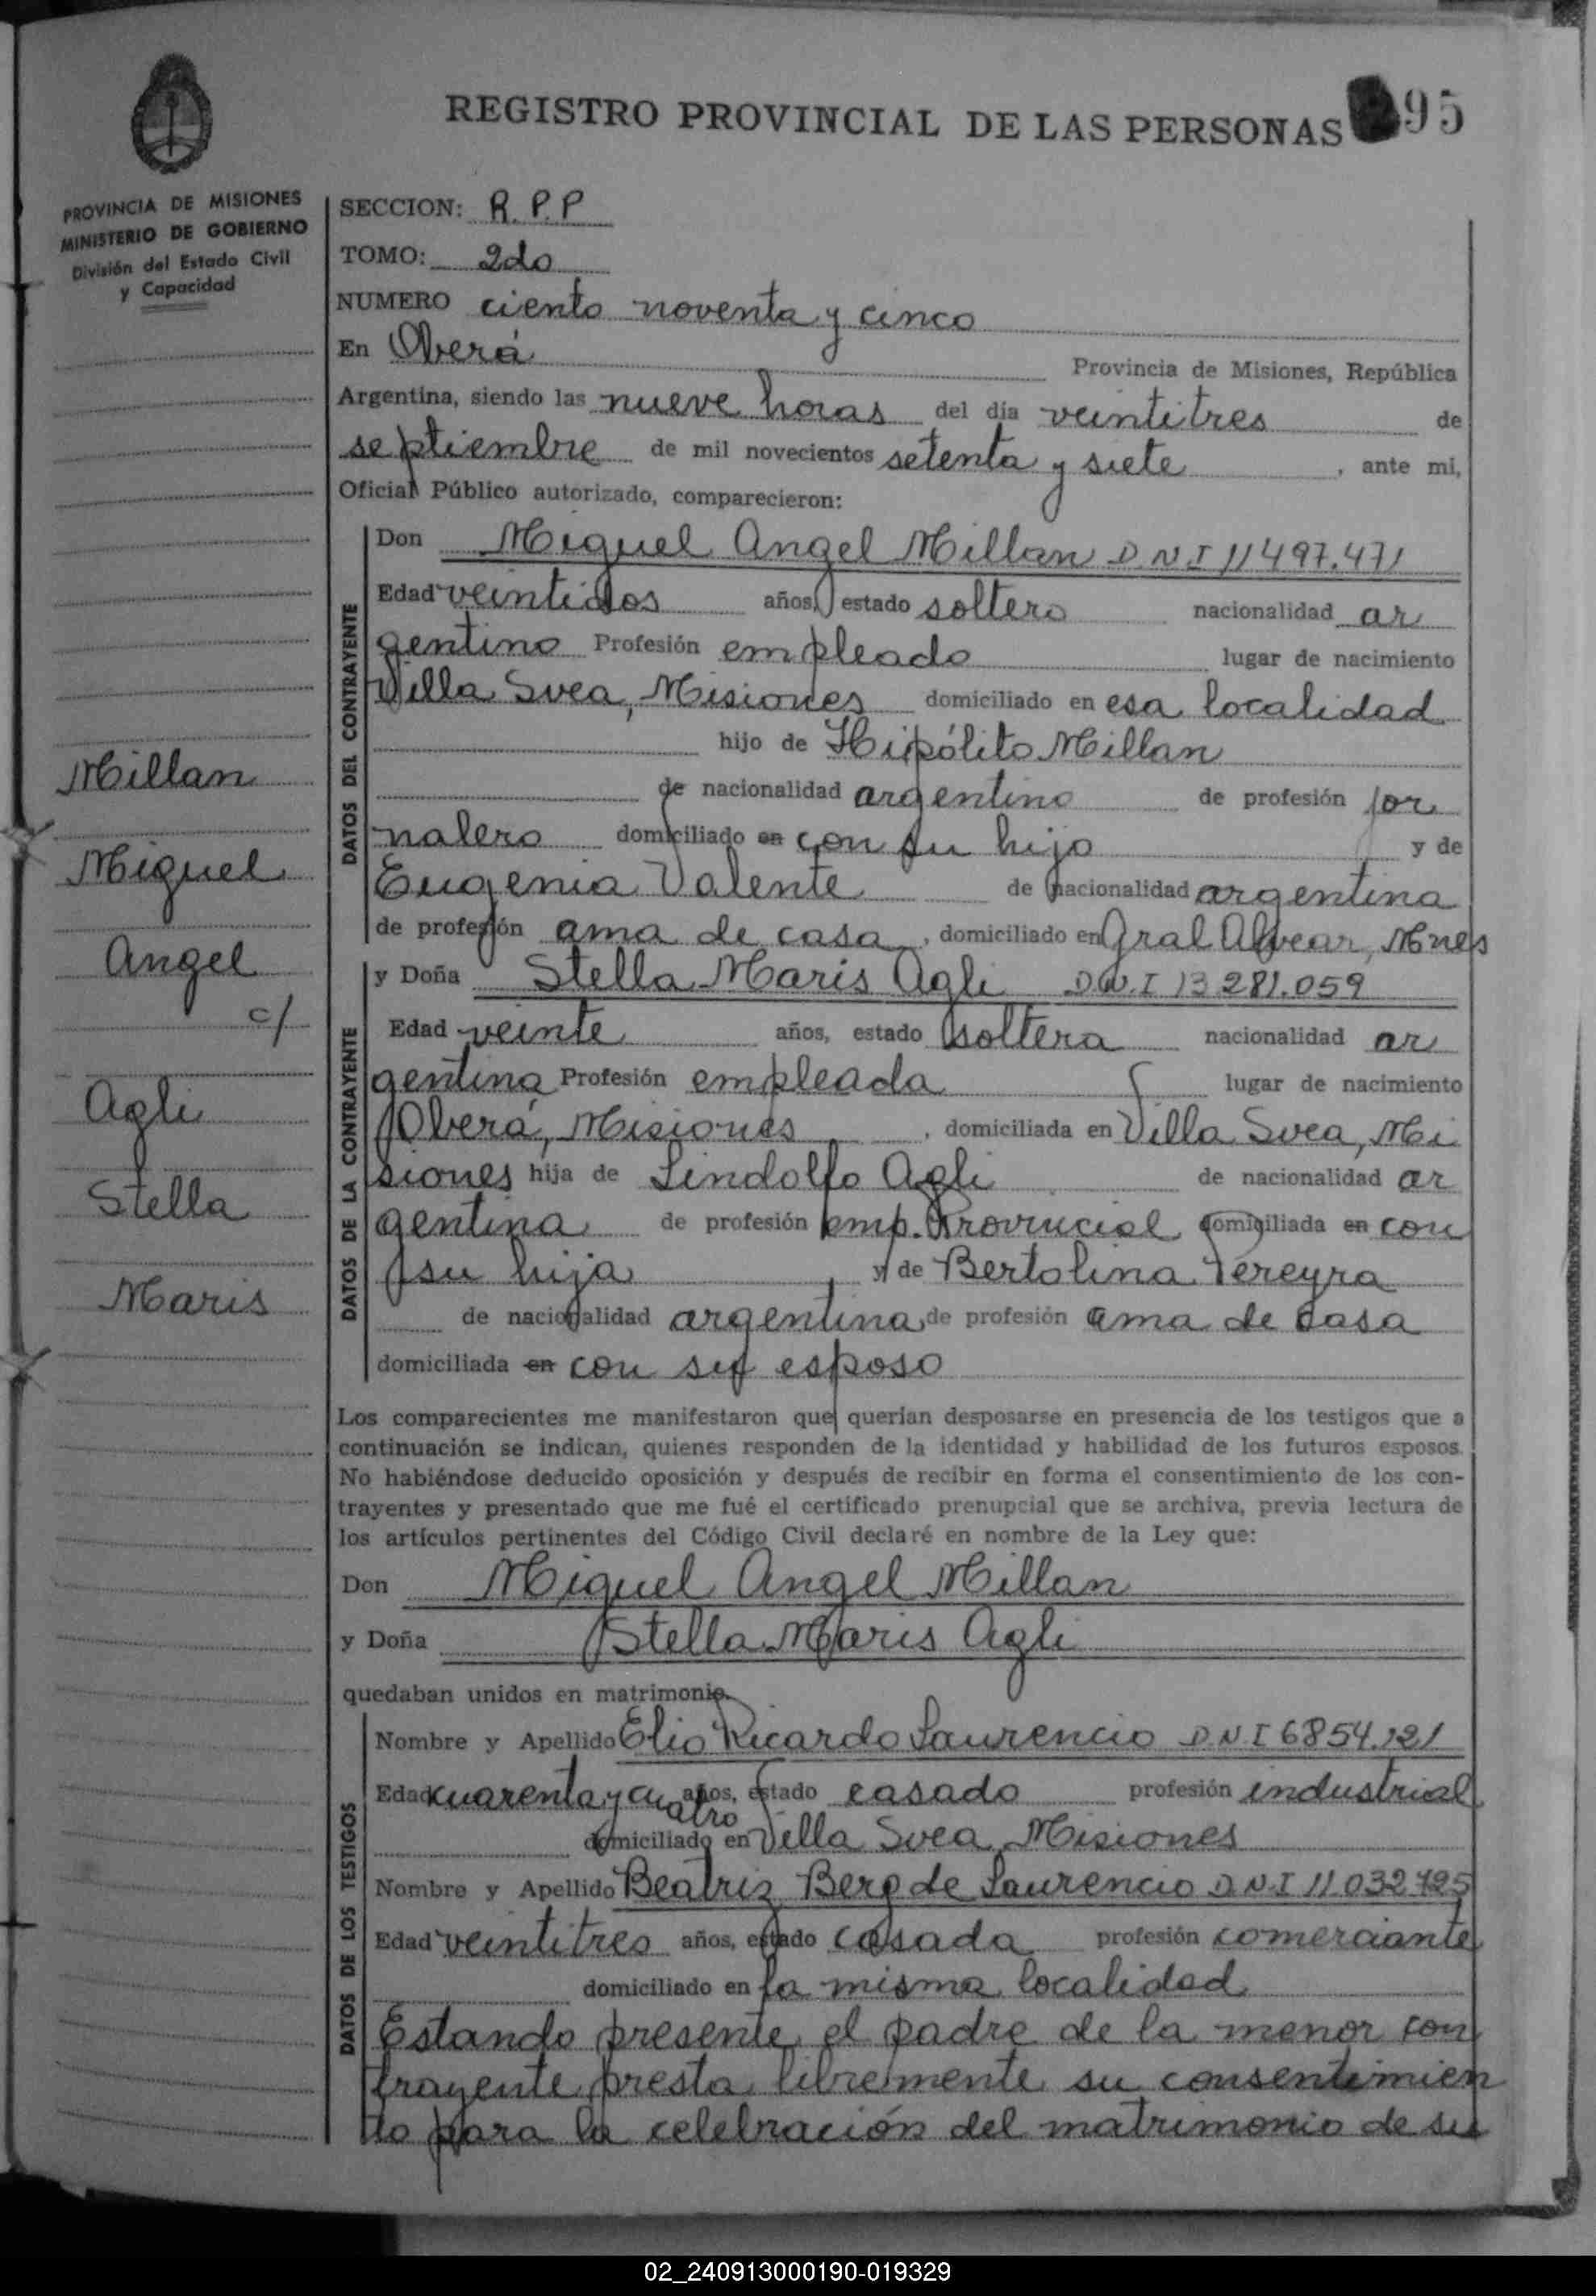 REGISTRO PROVINCIAL DE LAS PERSONAS 95
PROVINCIA DE MISIONES
MINISTERIO DE GOBIERNO
División del Estado Civil
y Capacidad
SECCION: R.P.P
TOMO: 2do
NUMERO ciento noventa y cinco
En Oberá Provincia de Misiones, República
Argentina, siendo las nueve horas del día veintitres de
septiembre de mil novecientos setenta y siete, ante mi,
Oficial Público autorizado, comparecieron:
DATOS DEL CONTRAYENTE
Don Miguel Angel Millan D.N.I 11497.471
Edad veintidos años, estado soltero nacionalidad ar
gentino Profesión empleado lugar de nacimiento
Villa Svea, Misiones domiciliado en esa localidad
hijo de Hipólito Millan
de nacionalidad argentino de profesión jor
nalero domiciliado en con su hijo y de
Eugenia Valente de nacionalidad argentina
de profesión ama de casa, domiciliado en Gral Alvear, Mnes
Millan
Miguel
Angel
c/
Agli
Stella
Maris
DATOS DE LA CONTRAYENTE
y Doña Stella Maris Agli D.N.I 13 281.059
Edad veinte años, estado soltera nacionalidad ar
gentina Profesión empleada lugar de nacimiento
Oberá, Misiones, domiciliada en Villa Svea, Mi
siones hija de Lindolfo Agli de nacionalidad ar
gentina de profesión emp. Provincial domiciliada en con
su hija y de Bertolina Pereyra
de nacionalidad argentina de profesión ama de casa
domiciliada en con su esposo
Los comparecientes me manifestaron que querían desposarse en presencia de los testigos que a
continuación se indican, quienes responden de la identidad y habilidad de los futuros esposos.
No habiéndose deducido oposición y después de recibir en forma el consentimiento de los con-
trayentes y presentado que me fué el certificado prenupcial que se archiva, previa lectura de
los artículos pertinentes del Código Civil declaré en nombre de la Ley que:
Don Miguel Angel Millan
y Doña Stella Maris Agli
quedaban unidos en matrimonio.
DATOS DE LOS TESTIGOS
Nombre y Apellido Elio Ricardo Laurencio D.N.I 6854.121
Edad cuarenta y cuatro años, estado casado profesión industrial
domiciliado en Villa Svea, Misiones
Nombre y Apellido Beatriz Berg de Laurencio D.N.I 11 032 725
Edad veintitres años, estado casada profesión comerciante
domiciliado en la misma localidad
Estando presente el padre de la menor con
trayente presta libremente su consentimien
to para la celebración del matrimonio de su
02_240913000190-019329